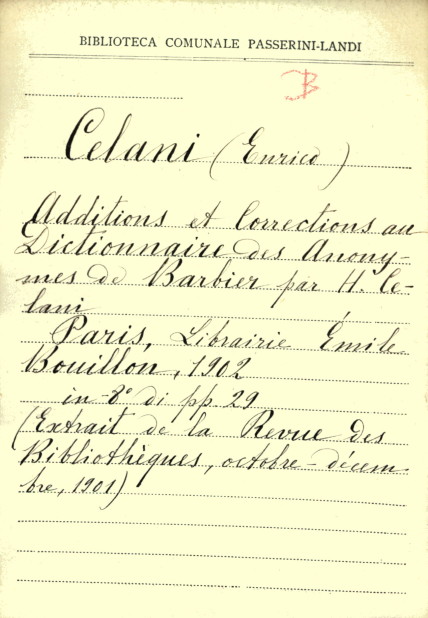 BIBLIOTECA COMUNALE PASSERINI-LANDI
B
Celani (Enrico)
Additions et Corrections au
Dictionnaire des Anony-
mes de Barbier par H. Ce-
lani
Paris, Librairie Émile
Bouillon, 1902
in-8° di pp. 29
(Extrait de la Revue des
Bibliothèques, octobre-décem-
bre, 1901)